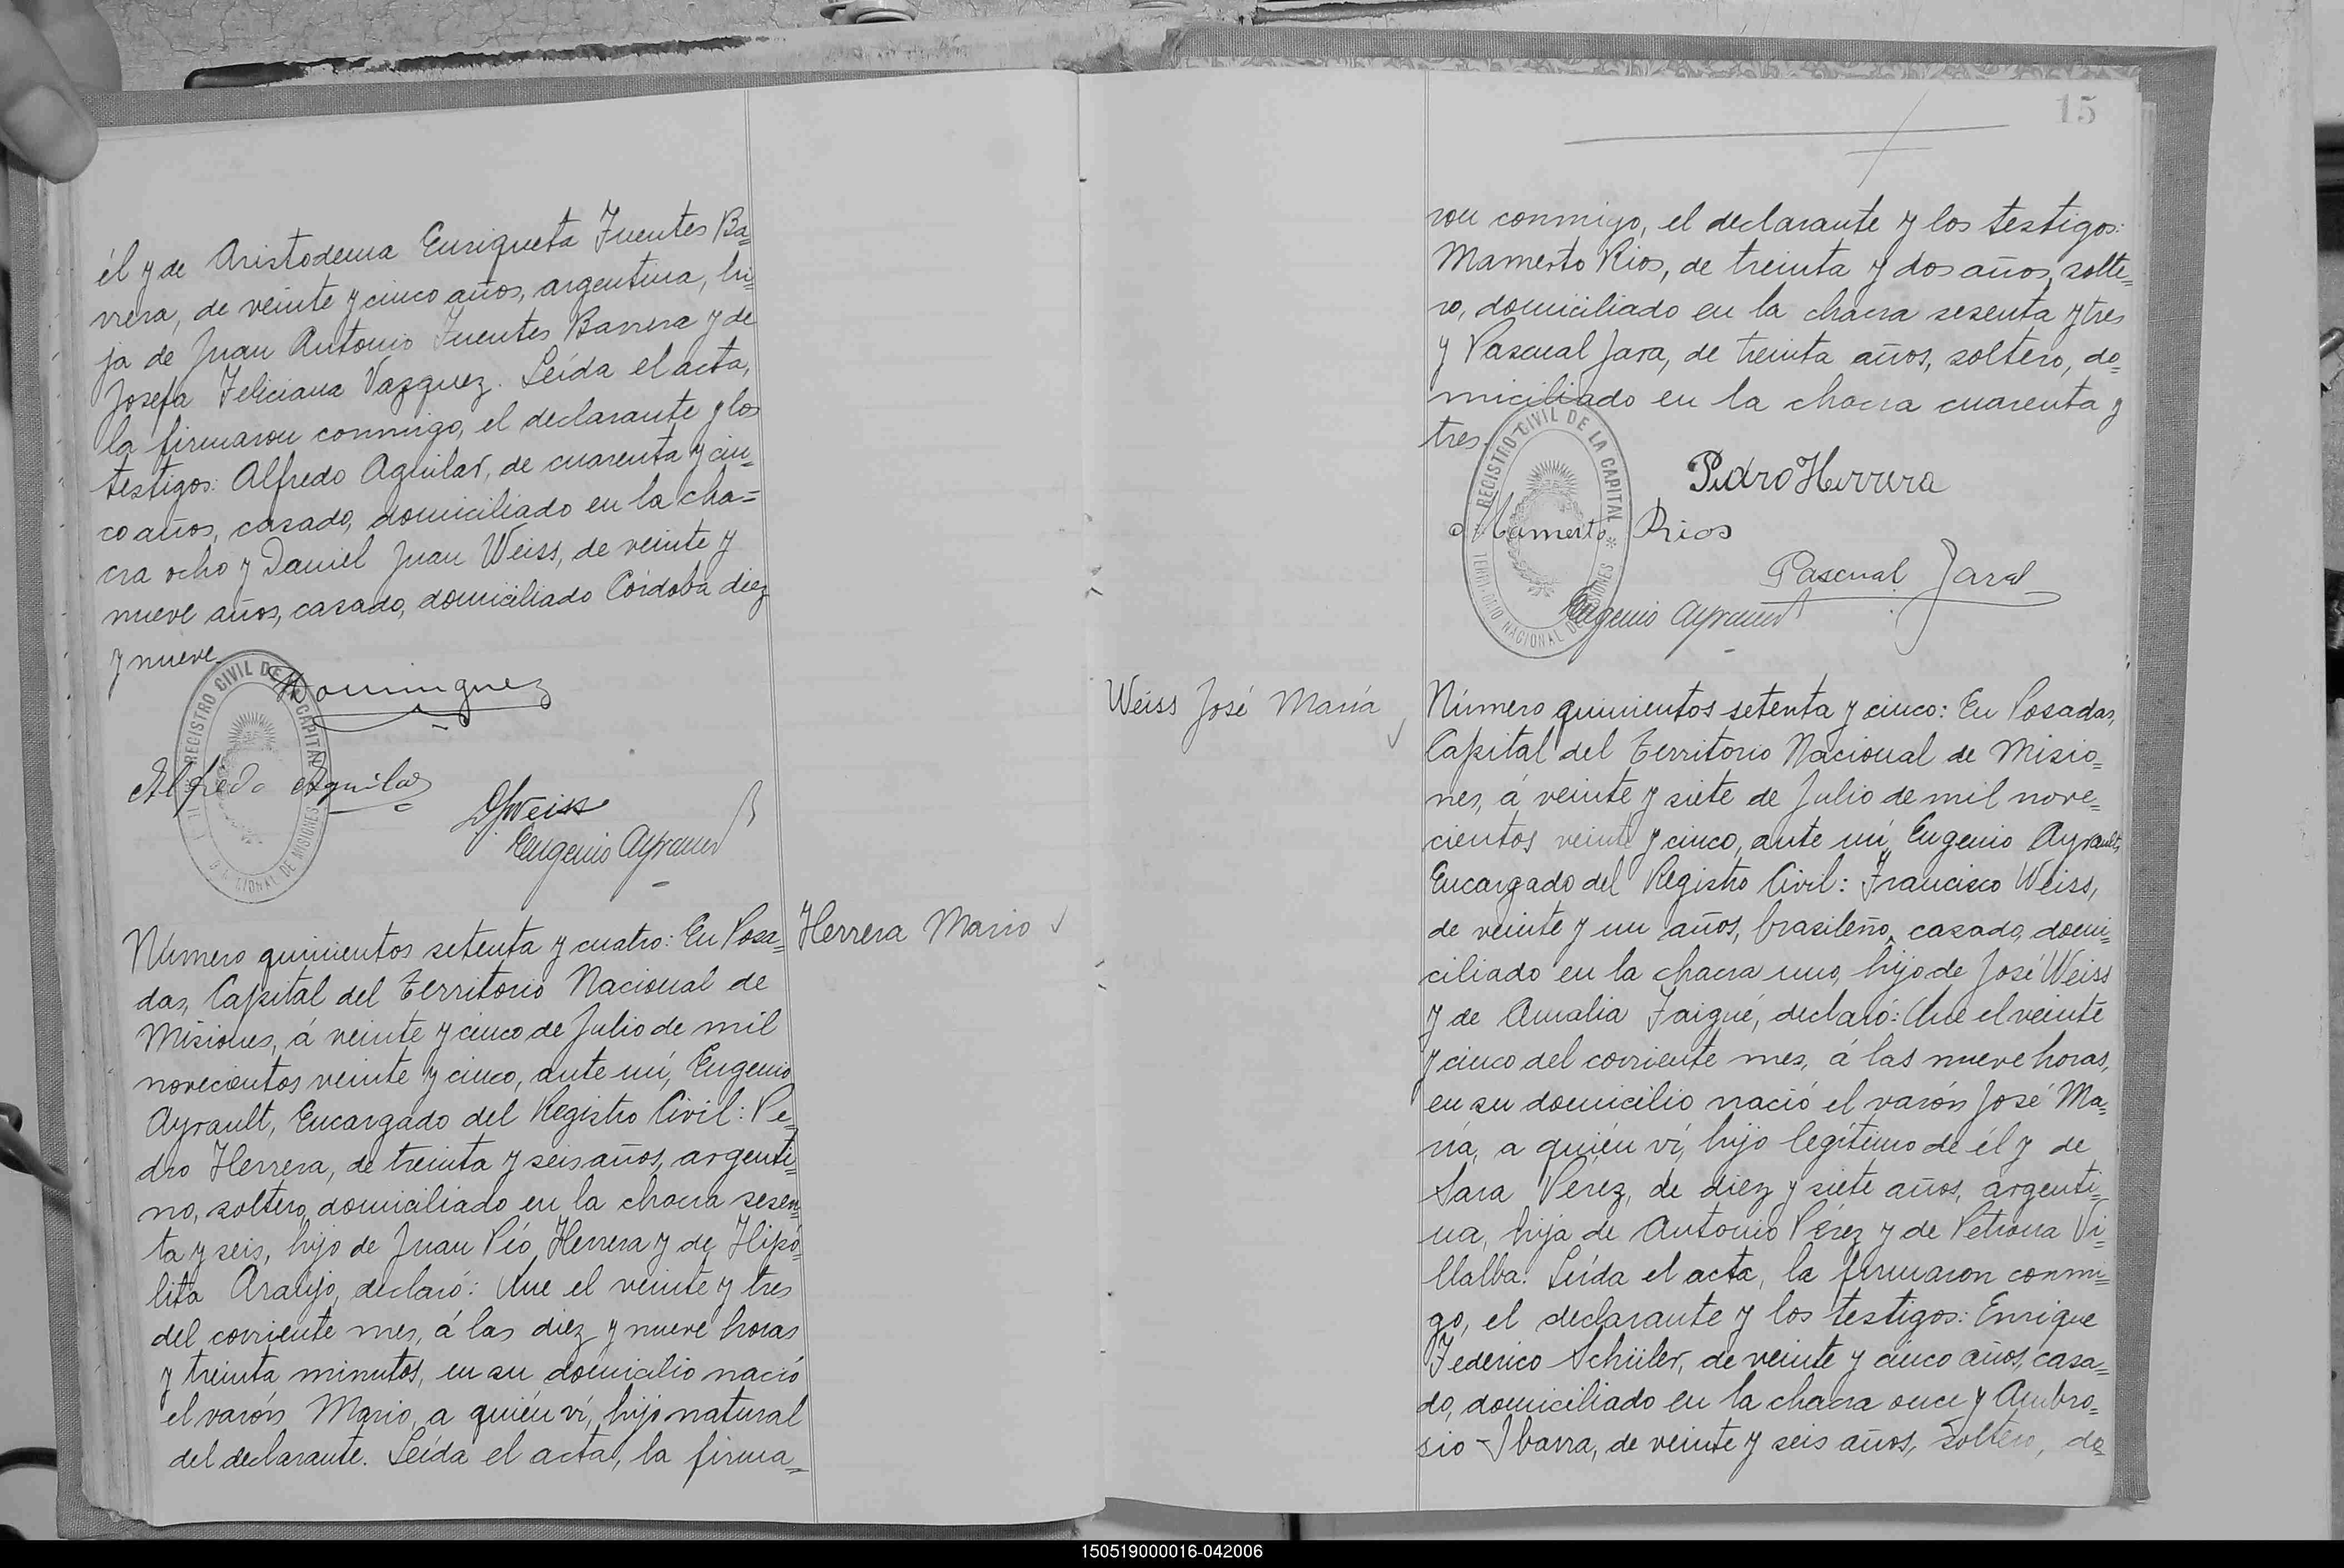 él y de Aristodema Enriqueta Fuentes Ba=
rrera, de veinte y cinco años, argentina, hi=
ja de Juan Antonio Fuentes Barrera y de
Josefa Feliciana Vazquez. Leída el acta,
la firmaron conmigo, el declarante y los
testigos: Alfredo Aguilar, de cuarenta y cin=
co años, casado, domiciliado en la cha=
cra ocho y Daniel Juan Weiss, de veinte y
nueve años, casado, domiciliado Córdoba diez
y nueve.
Dominguez
REGISTRO CIVIL DE LA CAPITAL
NACIONAL DE MISIONES
Alfredo Aguilar
DJWeiss
Eugenio Ayrault
Herrera Mario
Número quinientos setenta y cuatro: En Posa=
das, Capital del Territorio Nacional de
Misiones, á veinte y cinco de Julio de mil
novecientos veinte y cinco, ante mí, Eugenio
Ayrault, Encargado del Registro Civil: Pe=
dro Herrera, de treinta y seis años, argenti=
no, soltero, domiciliado en la chacra sesen=
ta y seis, hijo de Juan Pío Herrera y de Hipó=
lita Araujo, declaró: Que el veinte y tres
del corriente mes, á las diez y nueve horas
y treinta minutos, en su domicilio nació
el varón Mario, a quién ví, hijo natural
del declarante. Leída el acta, la firma=
15
ron conmigo, el declarante y los testigos:
Mamerto Rios, de treinta y dos años, solte=
ro, domiciliado en la chacra sesenta y tres
y Pascual Jara, de treinta años, soltero, do=
miciliado en la chacra cuarenta y
tres.
REGISTRO CIVIL DE LA CAPITAL
TERRITORIO NACIONAL DE MISIONES
Pedro Herrera
Mamerto Rios
Pascual Jara
Eugenio Ayrault
Weiss José María
Número quinientos setenta y cinco: En Posadas,
Capital del Territorio Nacional de Misio=
nes, á veinte y siete de Julio de mil nove=
cientos veinte y cinco, ante mí, Eugenio Ayrault,
Encargado del Registro Civil: Francisco Weiss,
de veinte y un años, brasileño, casado, domi=
ciliado en la chacra uno, hijo de José Weiss
y de Amalia Faigué, declaró: Que el veinte
y cinco del corriente mes, á las nueve horas,
en su domicilio nació el varón José Ma=
ría, a quién ví, hijo legítimo de él y de
Sara Pérez, de diez y siete años, argenti=
na, hija de Antonio Pérez y de Petrona Vi=
llalba. Leída el acta, la firmaron conmi=
go, el declarante y los testigos: Enrique
Federico Schüler, de veinte y cinco años, casa=
do, domiciliado en la chacra once y Ambro=
sio Ibarra, de veinte y seis años, soltero, do=
150519000016-042006